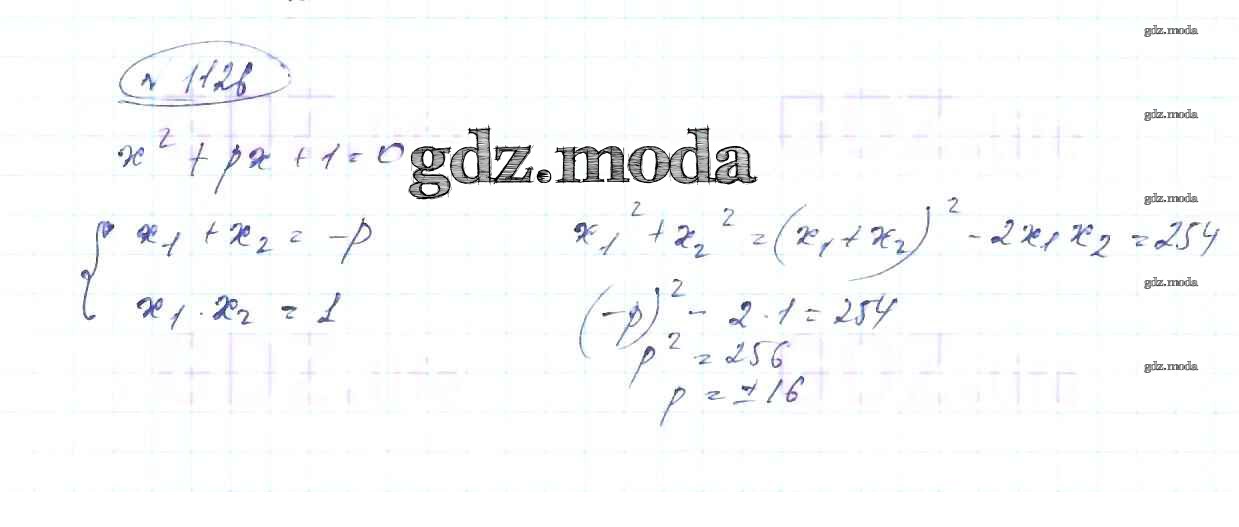 gdz.moda
№ 1126
gdz.moda
x² + px + 1 = 0
gdz.moda
gdz.moda
{ x₁ + x₂ = -p
x₁ · x₂ = 1
x₁² + x₂² = (x₁ + x₂)² - 2x₁x₂ = 254
gdz.moda
(-p)² - 2 · 1 = 254
p² = 256
gdz.moda
p = ±16